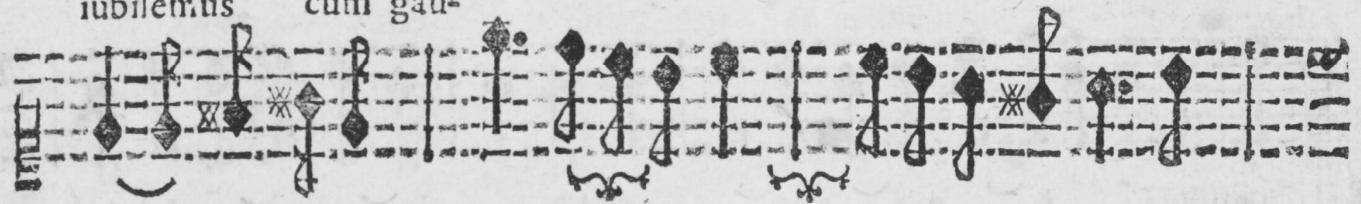 iubilemus cum gau-